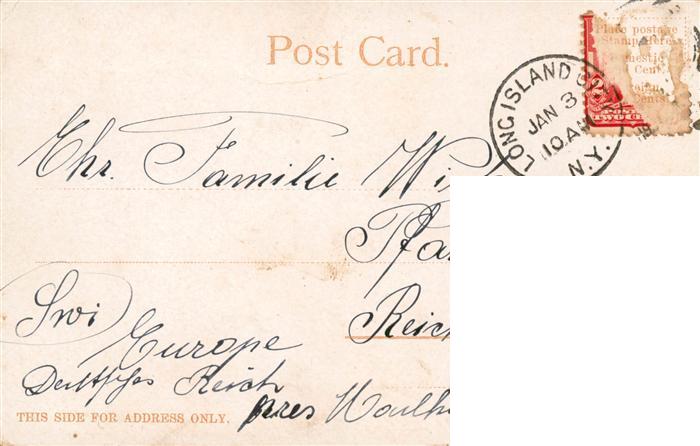 Post Card.
Place postage
Stamp Here
Domestic
Cent.
Cents.
2
POST
TWO CE
LONG ISLAND CITY
JAN 3
10 AM
N.Y.
Ehr. Familie Wi
Pfa
Reich
Swi
Europe
Deutsches Reich
THIS SIDE FOR ADDRESS ONLY.